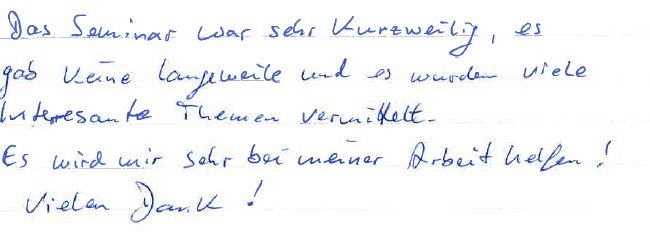 Das Seminar war sehr Kurzweilig, es
gab Keine Langeweile und es wurden viele
Interesante Themen vermittelt.
Es wird mir sehr bei meiner Arbeit helfen!
Vielen Dank!